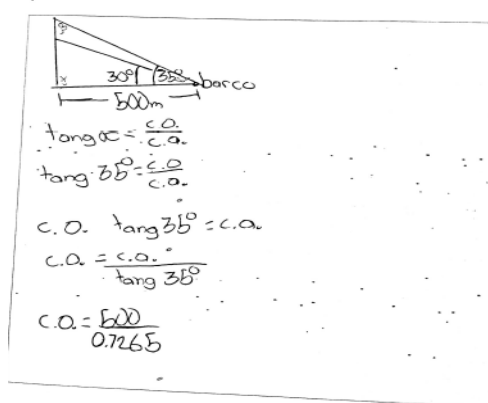 30° 35° barco
500m
tang x = c.o. / c.a.
tang 35° = c.o / c.a.
c.o. tang 35° = c.a.
c.a. = c.a. / tang 35°
c.o. = 500 / 0.7265